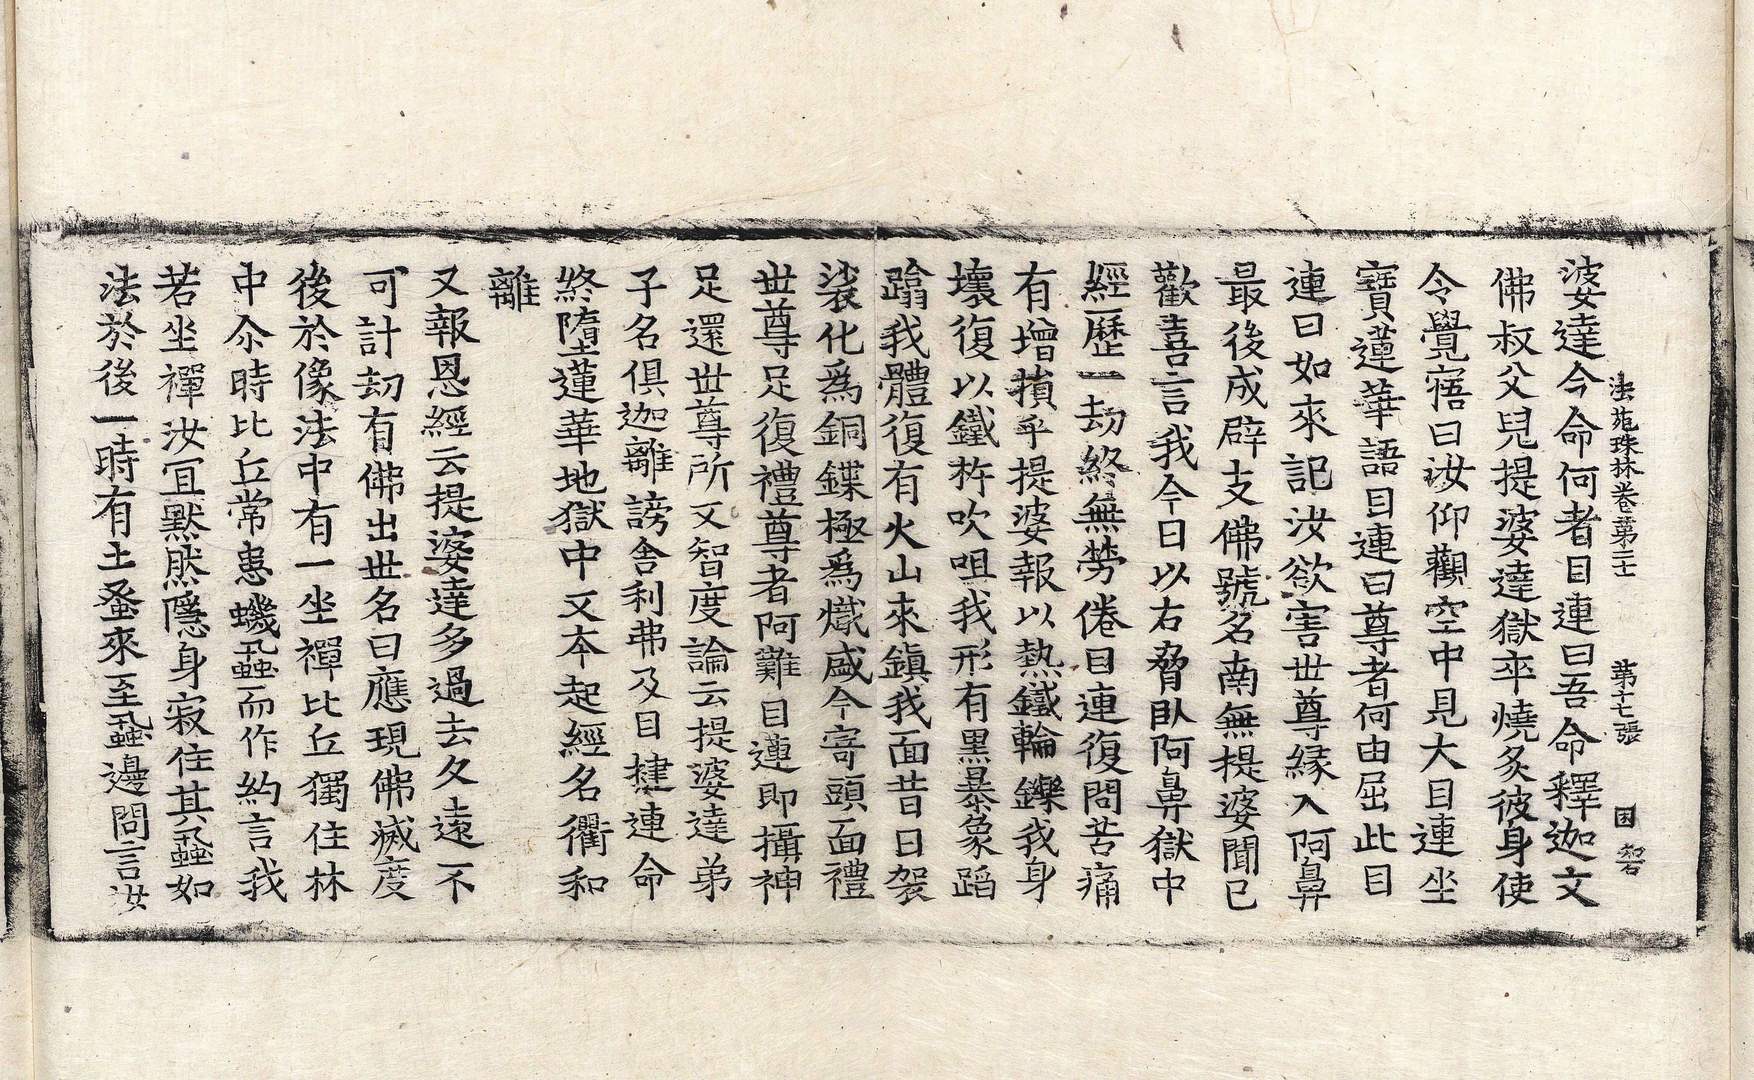 法苑珠林卷第三十 第十七張 困 智石
婆達今命何者目連曰吾命釋迦文
佛叔父兒提婆達獄卒燒炙彼身使
令覺寤曰汝仰觀空中見大目連坐
寶蓮華語目連曰尊者何由屈此目
連曰如來記汝欲害世尊緣入阿鼻
最後成辟支佛號名南無提婆聞已
歡喜言我今日以右脅臥阿鼻獄中
經歷一劫終無勞倦目連復問苦痛
有增損乎提婆報以熱鐵輪鑠我身
壞復以鐵杵吹咀我形有黑暴象蹈
蹹我體復有火山來鎮我面昔日袈
裟化為銅鍱極為熾盛今寄頭面禮
世尊足復禮尊者阿難目蓮即攝神
足還世尊所又智度論云提婆達弟
子名俱迦離謗舍利弗及目揵連命
終墮蓮華地獄中又本起經名衢和
離
又報恩經云提婆達多過去久遠不
可計劫有佛出世名曰應現佛滅度
後於像法中有一坐禪比丘獨住林
中尒時比丘常患蟣蝨而作約言我
若坐禪汝宜默然隱身寂住其蝨如
法於後一時有土蚤來至蝨邊問言汝